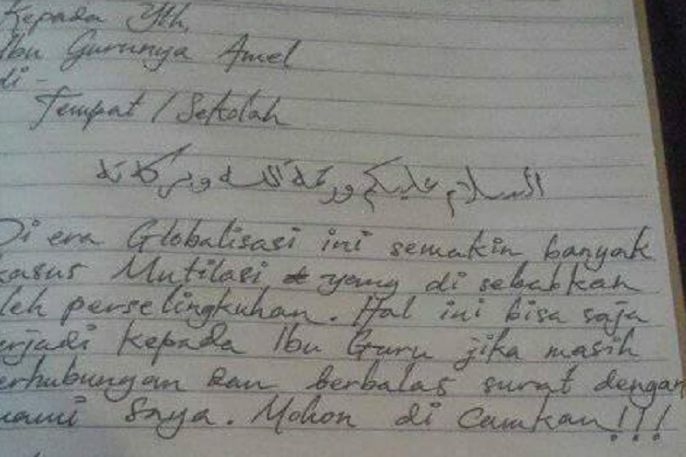 Kepada Yth,
Ibu Gurunya Amel
di -
Tempat / Sekolah
السلام عليكم ورحمة الله وبركاته
Di era Globalisasi ini semakin banyak
kasus Mutilasi yang di sebabkan
oleh perselingkuhan. Hal ini bisa saja
erjadi kepada Ibu Guru jika masih
erhubungan dan berbalas surat dengan
uami saya. Mohon di camkan!!!